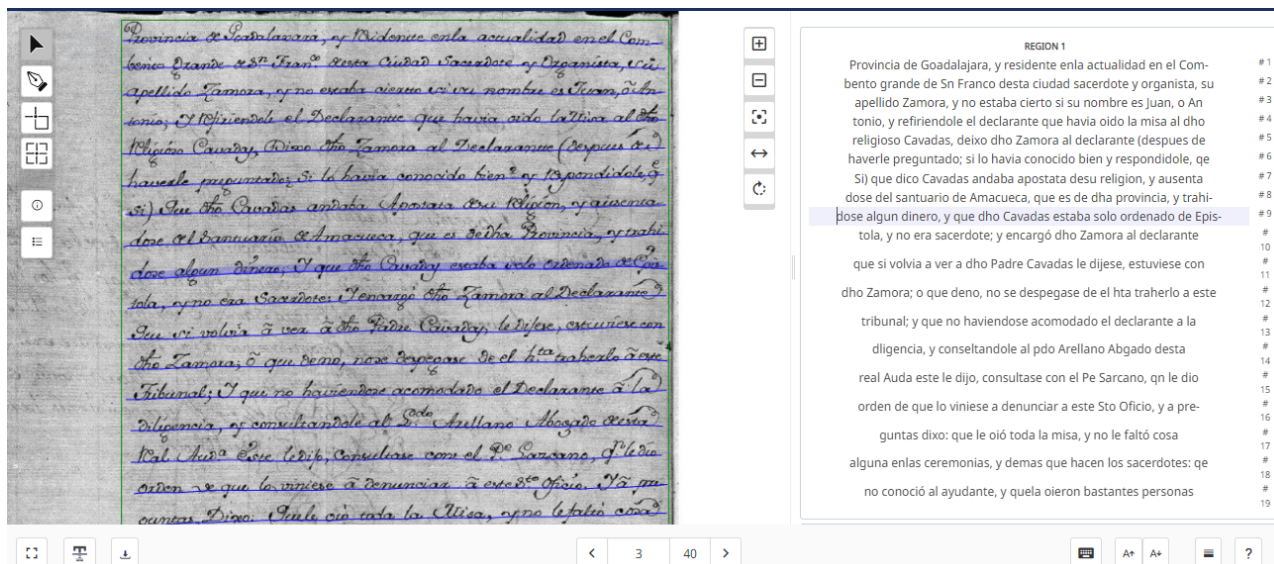 Provincia de Guadalaxara, y Residente enla actualidad en el Com-
bento Grande de Sn. Franco. desta Ciudad Sacerdote y Organista, su
apellido Zamora, y no estaba cierto si su nombre es Juan, ó An-
tonio; Y Refiriendole el Declarante que havia oido la Misa al dho
Religioso Cavadas, Dixo dho Zamora al Declarante (despues de
haverle preguntado; Si lo havia conocido bien? y Respondidole, qe
Si) Que dho Cavadas andaba Apostata desu Religion, y ausenta-
dose del Santuario de Amacueca, que es dedha Provincia, y trahi-
dose algun dinero; Y que dho Cavadas estaba solo ordenado de Epis-
tola, y no era Sacerdote; Y encargó dho Zamora al Declarante
Que si volvia á ver á dho Padre Cavadas, le dijese, estuviese con
dho Zamora; ó que deno, nose despegase de el hta. traherlo á este
Tribunal; Y que no haviendose acomodado el Declarante á la
diligencia, y consultandole al Ldo. Arellano Abogado desta
Real Auda. Este le dijo, Consultase con el Pe. Sarcano, qn. le dio
orden de que lo viniese á denunciar á este Sto. Oficio. Y á pre-
guntas Dixo: Quele oió toda la Misa, y no le faltó cosa
REGION 1
Provincia de Goadalajara, y residente enla actualidad en el Com- #1
bento grande de Sn Franco desta ciudad sacerdote y organista, su #2
apellido Zamora, y no estaba cierto si su nombre es Juan, o An #3
tonio, y refiriendole el declarante que havia oido la misa al dho #4
religioso Cavadas, deixo dho Zamora al declarante (despues de #5
haverle preguntado; si lo havia conocido bien y respondidole, qe #6
Si) que dico Cavadas andaba apostata desu religion, y ausenta #7
dose del santuario de Amacueca, que es de dha provincia, y trahi- #8
dose algun dinero, y que dho Cavadas estaba solo ordenado de Epis- #9
tola, y no era sacerdote; y encargó dho Zamora al declarante #10
que si volvia a ver a dho Padre Cavadas le dijese, estuviese con #11
dho Zamora; o que deno, no se despegase de el hta traherlo a este #12
tribunal; y que no haviendose acomodado el declarante a la #13
dligencia, y conseltandole al pdo Arellano Abgado desta #14
real Auda este le dijo, consultase con el Pe Sarcano, qn le dio #15
orden de que lo viniese a denunciar a este Sto Oficio, y a pre- #16
guntas dixo: que le oió toda la misa, y no le faltó cosa #17
alguna enlas ceremonias, y demas que hacen los sacerdotes: qe #18
no conoció al ayudante, y quela oieron bastantes personas #19
3 40